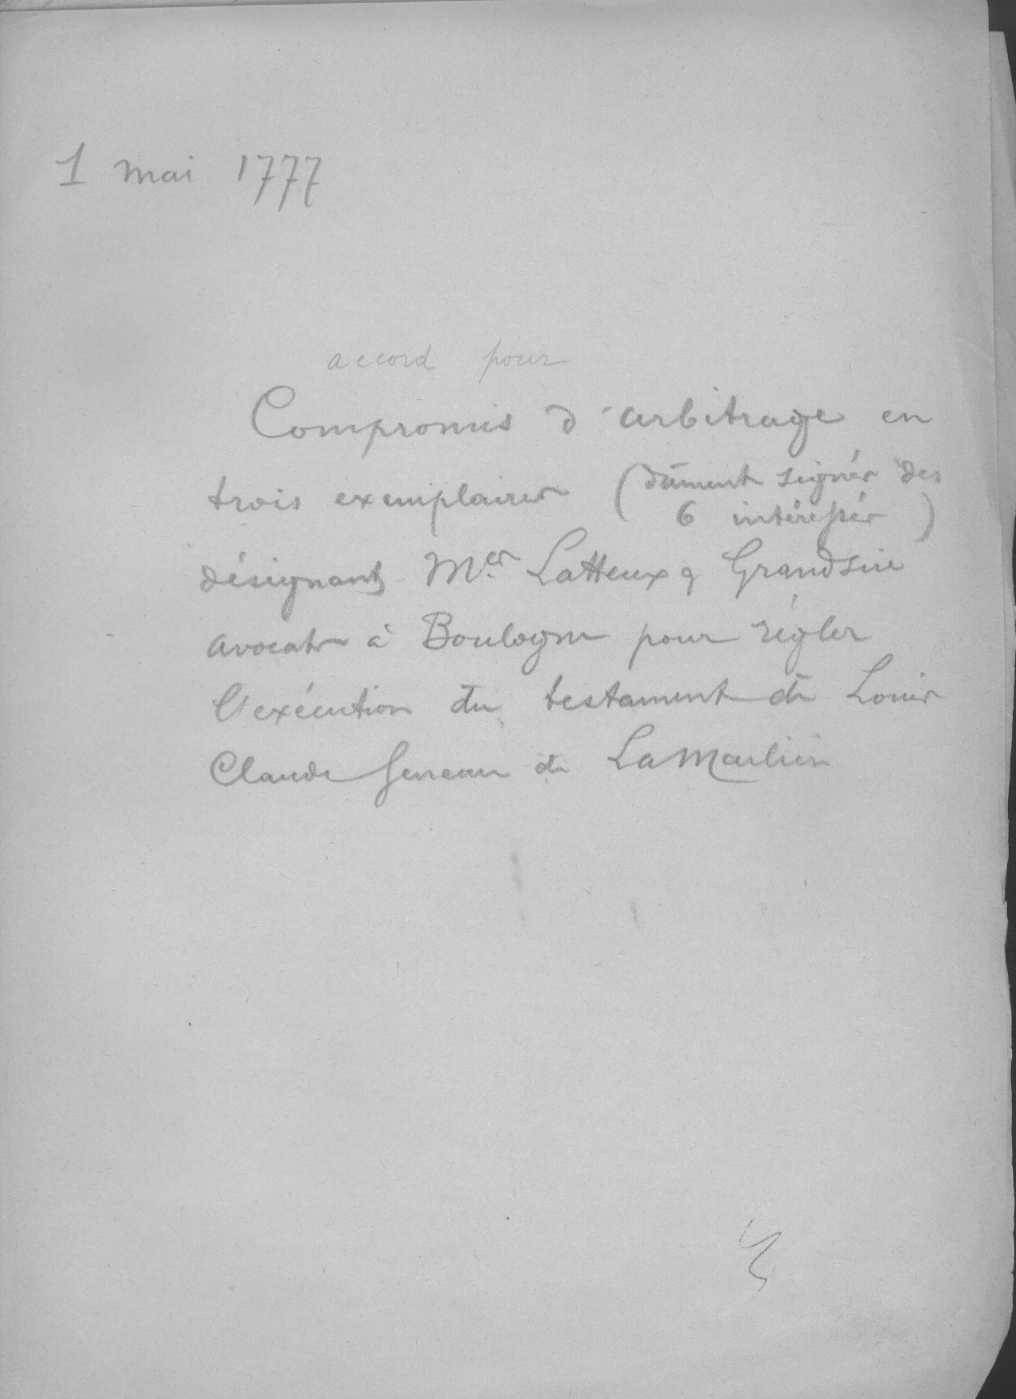 1 mai 1777
accord pour
Compromis d'arbitrage en
trois exemplaires (dûment signés des
6 intéressés)
désignant Mes. Latteux & Grandsire
avocats à Boulogne pour régler
l'exécution du testament de Louis
Claude Geneau de La Marlière